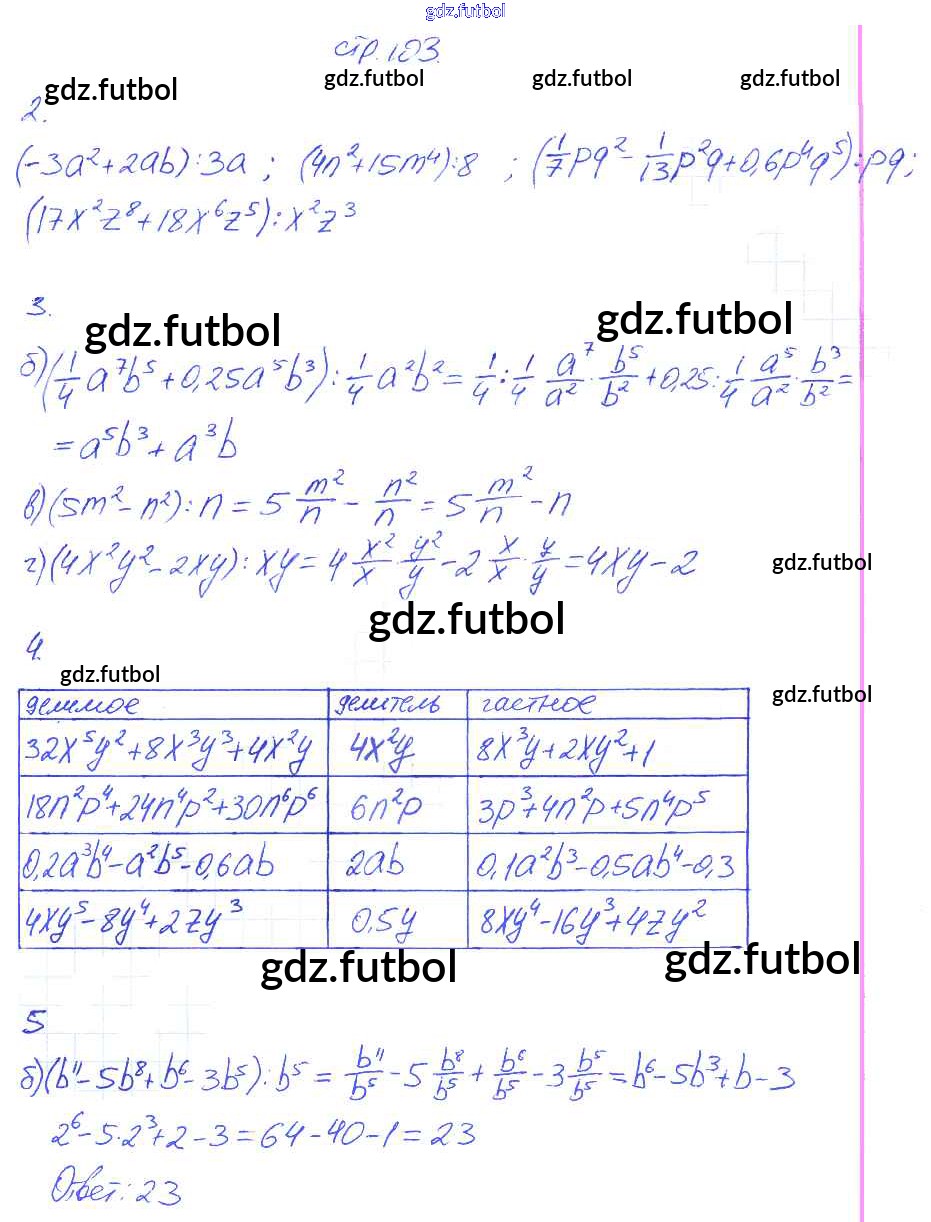 gdz.futbol
стр. 103.
gdz.futbol gdz.futbol gdz.futbol gdz.futbol
2.
(-3a²+2ab):3a ; (4n²+15m⁴):8 ; (1/7 pq² - 1/13 p²q+0,6p⁴q⁵):pq;
(17x²z⁸+18x⁶z⁵):x²z³
3.
gdz.futbol gdz.futbol
б)(1/4 a⁷b⁵+0,25a⁵b³):1/4 a²b²= 1/4 : 1/4 a⁷/a² · b⁵/b² +0,25: 1/4 a⁵/a² · b³/b² =
= a⁵b³+ a³b
в)(5m²-n²):n = 5 m²/n - n²/n = 5 m²/n - n
г)(4x²y²-2xy):xy= 4 x²/x · y²/y - 2 x/x · y/y =4xy-2
gdz.futbol
gdz.futbol
4.
gdz.futbol
gdz.futbol
делимое делитель частное
32x⁵y²+8x³y³+4x²y 4x²y 8x³y+2xy²+1
18n²p⁴+24n⁴p²+30n⁶p⁶ 6n²p 3p³+4n²p+5n⁴p⁵
0,2a³b⁴-a²b⁵-0,6ab 2ab 0,1a²b³-0,5ab⁴-0,3
4xy⁵-8y⁴+2zy³ 0,5y 8xy⁴-16y³+4zy²
gdz.futbol gdz.futbol
5
б)(b¹¹-5b⁸+b⁶-3b⁵):b⁵ = b¹¹/b⁵ - 5 b⁸/b⁵ + b⁶/b⁵ - 3 b⁵/b⁵ = b⁶-5b³+b-3
2⁶-5·2³+2-3=64-40-1=23
Ответ: 23